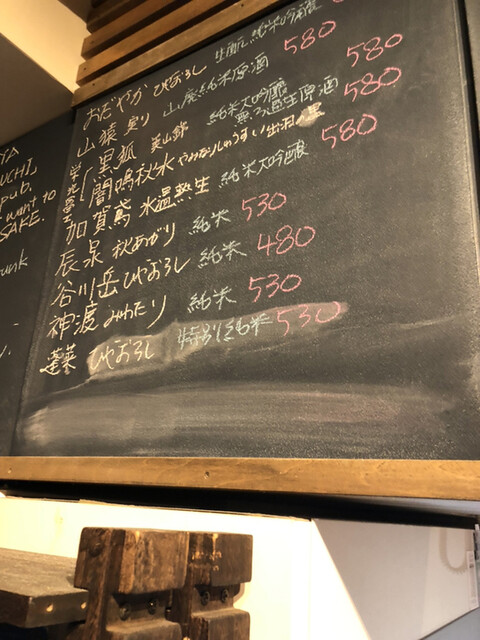 YA
UCHI,
pub.
want to
SAKE.
unk
おだやか ひやおろし 生酛 純米吟醸 580
山猿 実り 山廃純米原酒
栄光冨士 黒狐 美山錦 純米大吟醸 無ろ過生原酒 580
闇鳴秋水 やみなりしゅうすい 出羽の里 580
加賀鳶 氷温熟生 純米大吟醸 580
辰泉 秋あがり 純米 530
谷川岳 ひやおろし 純米 480
神渡 みわたり 純米 530
蓬莱 ひやおろし 特別純米 530